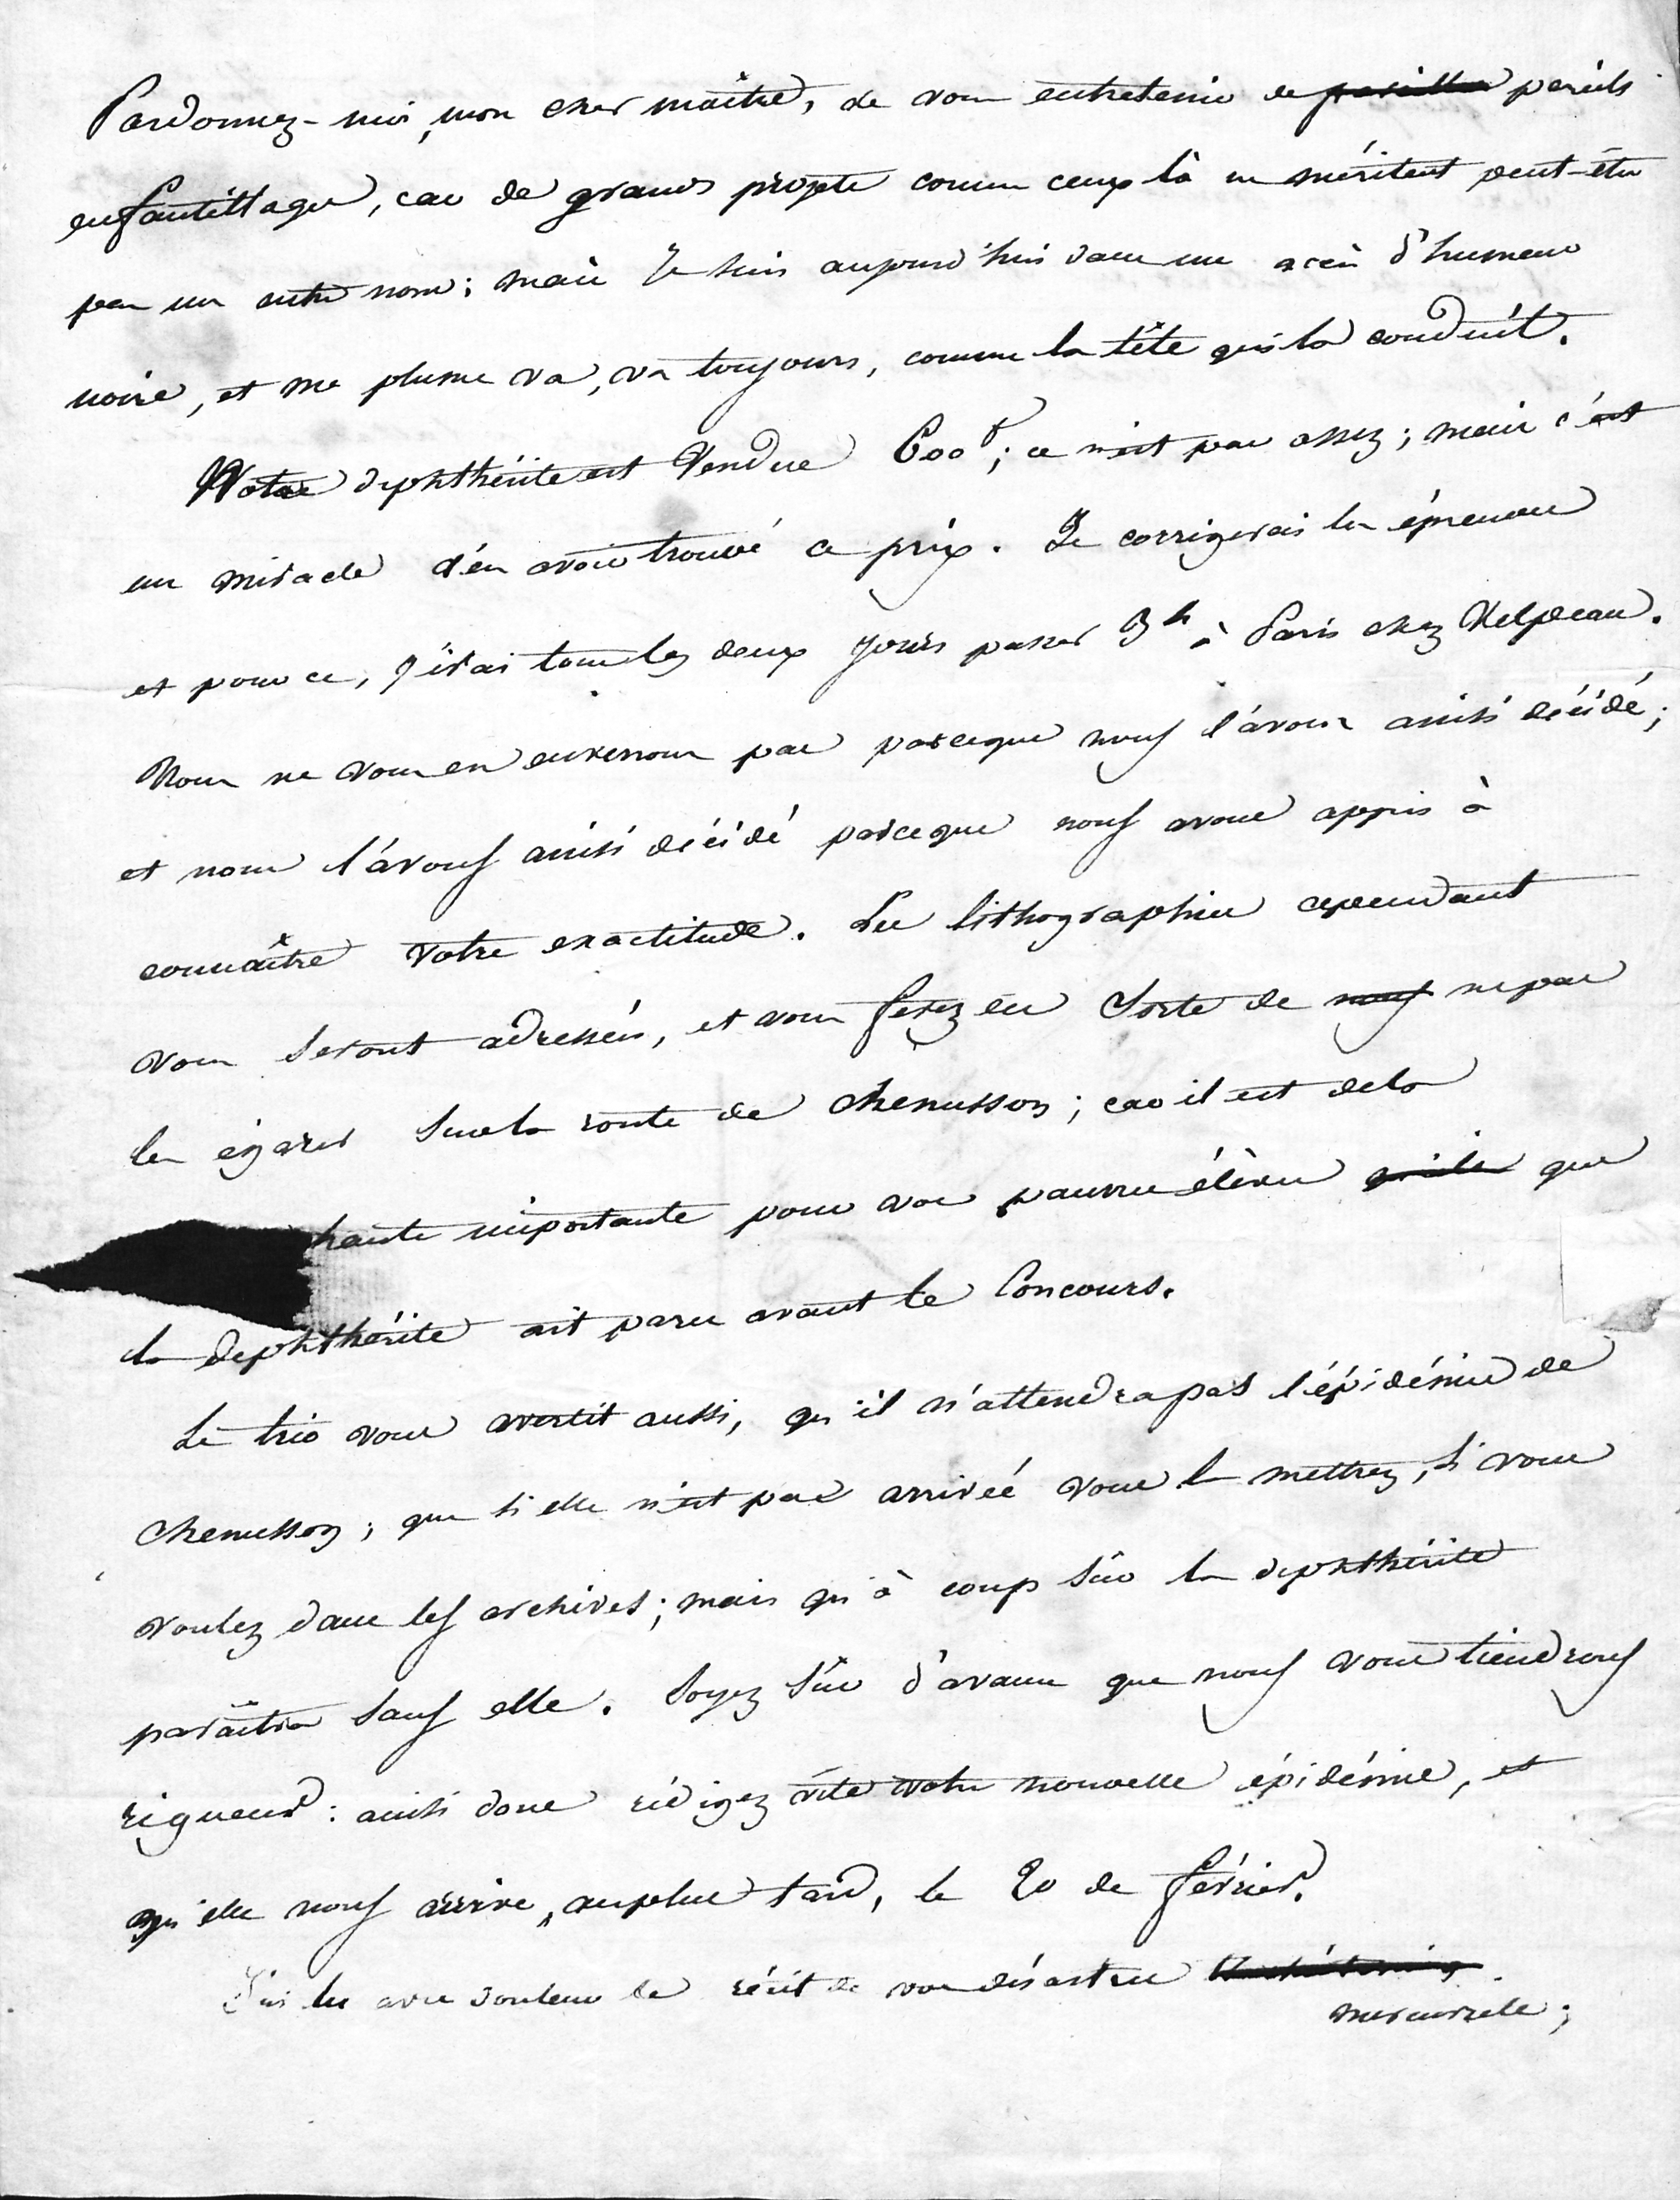 Pardonnez-moi, mon cher maître, de vous entretenir de pareils
enfantillages, car de grands projets comme ceux là ne méritent peut-être
pas un autre nom; mais je suis aujourd'hui dans un accès d'humeur
noire, et ma plume va, va toujours, comme la tête qui la conduit.
Notre diphthérite est vendue 600f; ce n'est pas assez; mais c'est
un miracle d'en avoir trouvé ce prix. Je corrigerai les épreuves
et pour ce, j'irai tous les deux jours passer 3h à Paris chez Velpeau.
Nous ne vous en enverrons pas parceque nous l'avons ainsi décidé;
et nous l'avons ainsi décidé parceque nous avons appris à
connaître votre exactitude. Les lithographies cependant
vous seront adressées, et vous ferez en sorte de ne pas
les égarer sur la route de Chenusson; car il est de la
haute importante pour vos pauvres élèves que
la diphthérite ait paru avant le Concours.
Le trio vous avertit aussi, qu'il n'attendra pas l'épidémie de
Chenusson; que si elle n'est pas arrivée vous la mettrez, si vous
voulez dans les archives; mais qu'à coup sûr la diphthérite
paraîtra sans elle. Soyez sûr d'avance que nous vous tiendrons
rigueur: ainsi donc rédigez vite votre nouvelle épidémie, et
qu'elle nous arrive, au plus tard, le 20 de février.
J'ai lu avec douleur le récit de vos désastres
mercuriels;